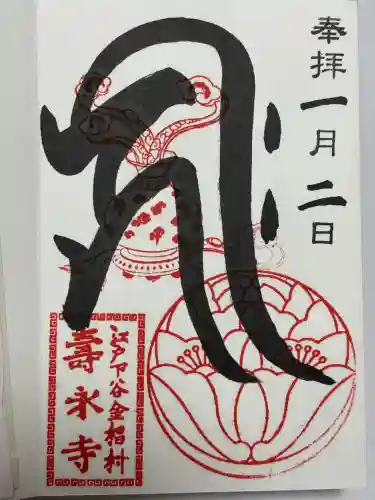 奉拝
一月二日
江戸下谷金杉村
壽永寺